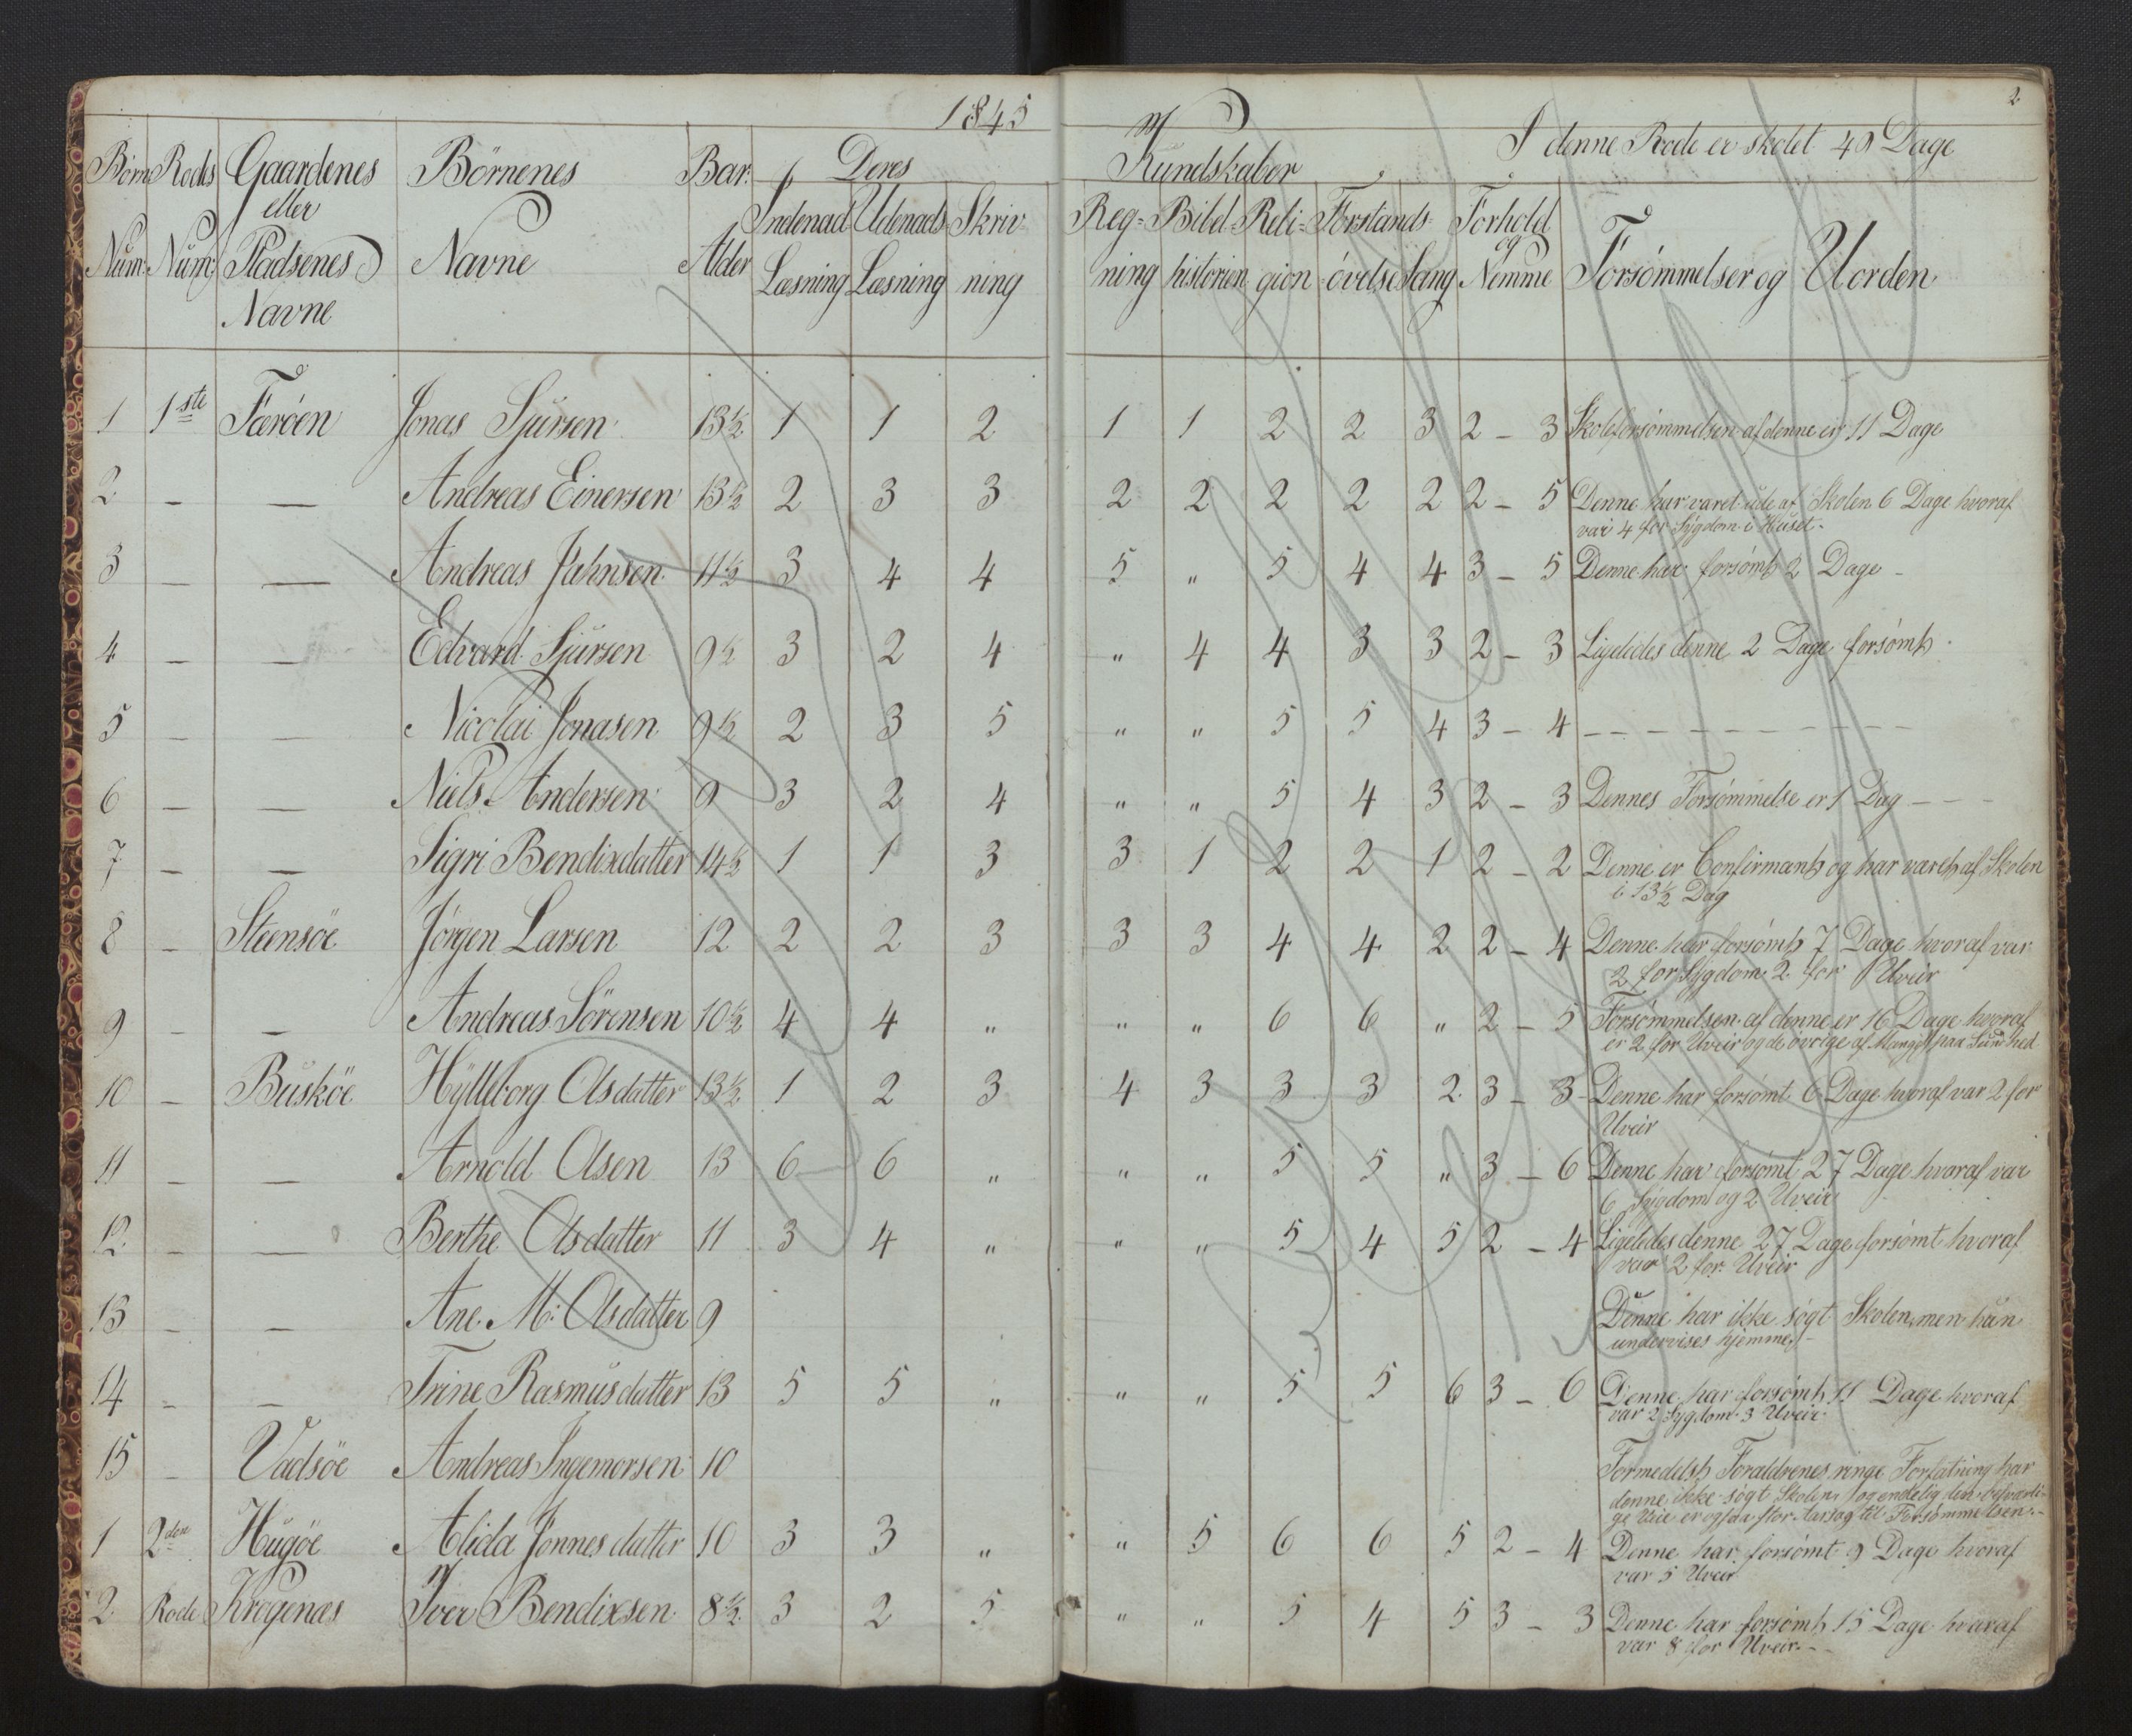 1845
2
Börn Rodes Gaardenes Börnenes Bar: Deres Kundskaber I denne Rode er skolet 49 Dage
eller
Num: Num: Pladsenes Navne Alder Indenad Udenads Skriv Reg= Bibel- Reli= Forstands- Forhold
Navne Læsning Læsning ning ning historien gion övelse Sang og Nemme Forsömmelser og Uorden
1 1ste Færöen Jonas Sjursen 13½ 1 1 2 1 1 2 2 3 2 - 3 Skoleforsömmelsen af denne er 11 Dage
2 - - Andreas Einersen 13½ 2 3 3 2 2 2 2 2 2 - 5 Denne har været ude af Skolen 6 Dage hvoraf
var 4 for Sygdom i Huset.
3 - - Andreas Jahnsen 11½ 3 4 4 5 " 5 4 4 3 - 5 Denne har forsömt 2 Dage -
4 - - Edvard Sjursen 9½ 3 2 4 " 4 4 3 3 2 - 3 Ligeledes denne 2 Dage forsömt
5 - - Nicolai Jonasen 9½ 2 3 5 " " 5 5 4 3 - 4 - - - - - - - - -
6 - - Niels Andersen 9 3 2 4 " " 5 4 3 2 - 3 Dennes Forsömmelse er 1 Dag - - -
7 - - Sigri Bendixdatter 14½ 1 1 3 3 1 2 2 1 2 - 2 Denne er Confirmant og har været af Skolen
i 13½ Dag
8 - Steensöe Jörgen Larsen 12 2 2 3 3 3 4 4 2 2 - 4 Denne har forsömt 7 Dage hvoraf var
2 for Sygdom 2 for Uveir
9 - - Andreas Sörensen 10½ 4 4 " " " 6 6 " 2 - 5 Forsömmelsen af denne er 16 Dage hvoraf
er 2 for Uveir og de övrige af Mangel paa Sundhed
10 - Busköe Hylleborg Olsdatter 13½ 1 2 3 4 3 3 3 2 3 - 3 Denne har forsömt 6 Dage hvoraf var 2 for
Uveir
11 - - Arnold Olsen 13 6 6 " " " 5 5 " 3 - 6 Denne har forsömt 27 Dage hvoraf var
6 Sygdom og 2 Uveir
12 - - Berthe Olsdatter 11 3 4 " " " 5 4 5 2 - 4 Ligeledes denne 27 Dage forsömt hvoraf
var 2 for Uveir
13 - - Ane M: Olsdatter 9 Denne har ikke sögt Skolen, men hun
undervises hjemme. -
14 - - Trine Rasmusdatter 13 5 5 " " " 5 5 6 3 - 6 Denne har forsömt 11 Dage hvoraf
var 2 Sygdom 3 Uveir
15 - Vadsöe Andreas Ingemorsen 10 Formedelst Forældrenes ringe Forfatning har
denne ikke sögt Skolen, og endelig den besværli-
ge Veie er ogsaa stor Aarsag til Forsömmelsen.
1 2den Hugöe Alida Jonnesdatter 10 3 3 " " 5 6 6 5 2 - 4 Denne har forsömt 9 Dage hvoraf
var 5 Uveir
2 Rode Krogenæs Iver Bendixsen 8½ 3 2 5 " " 5 4 5 3 - 3 Denne har forsömt 15 Dage hvoraf
var 8 for Uveir. - -